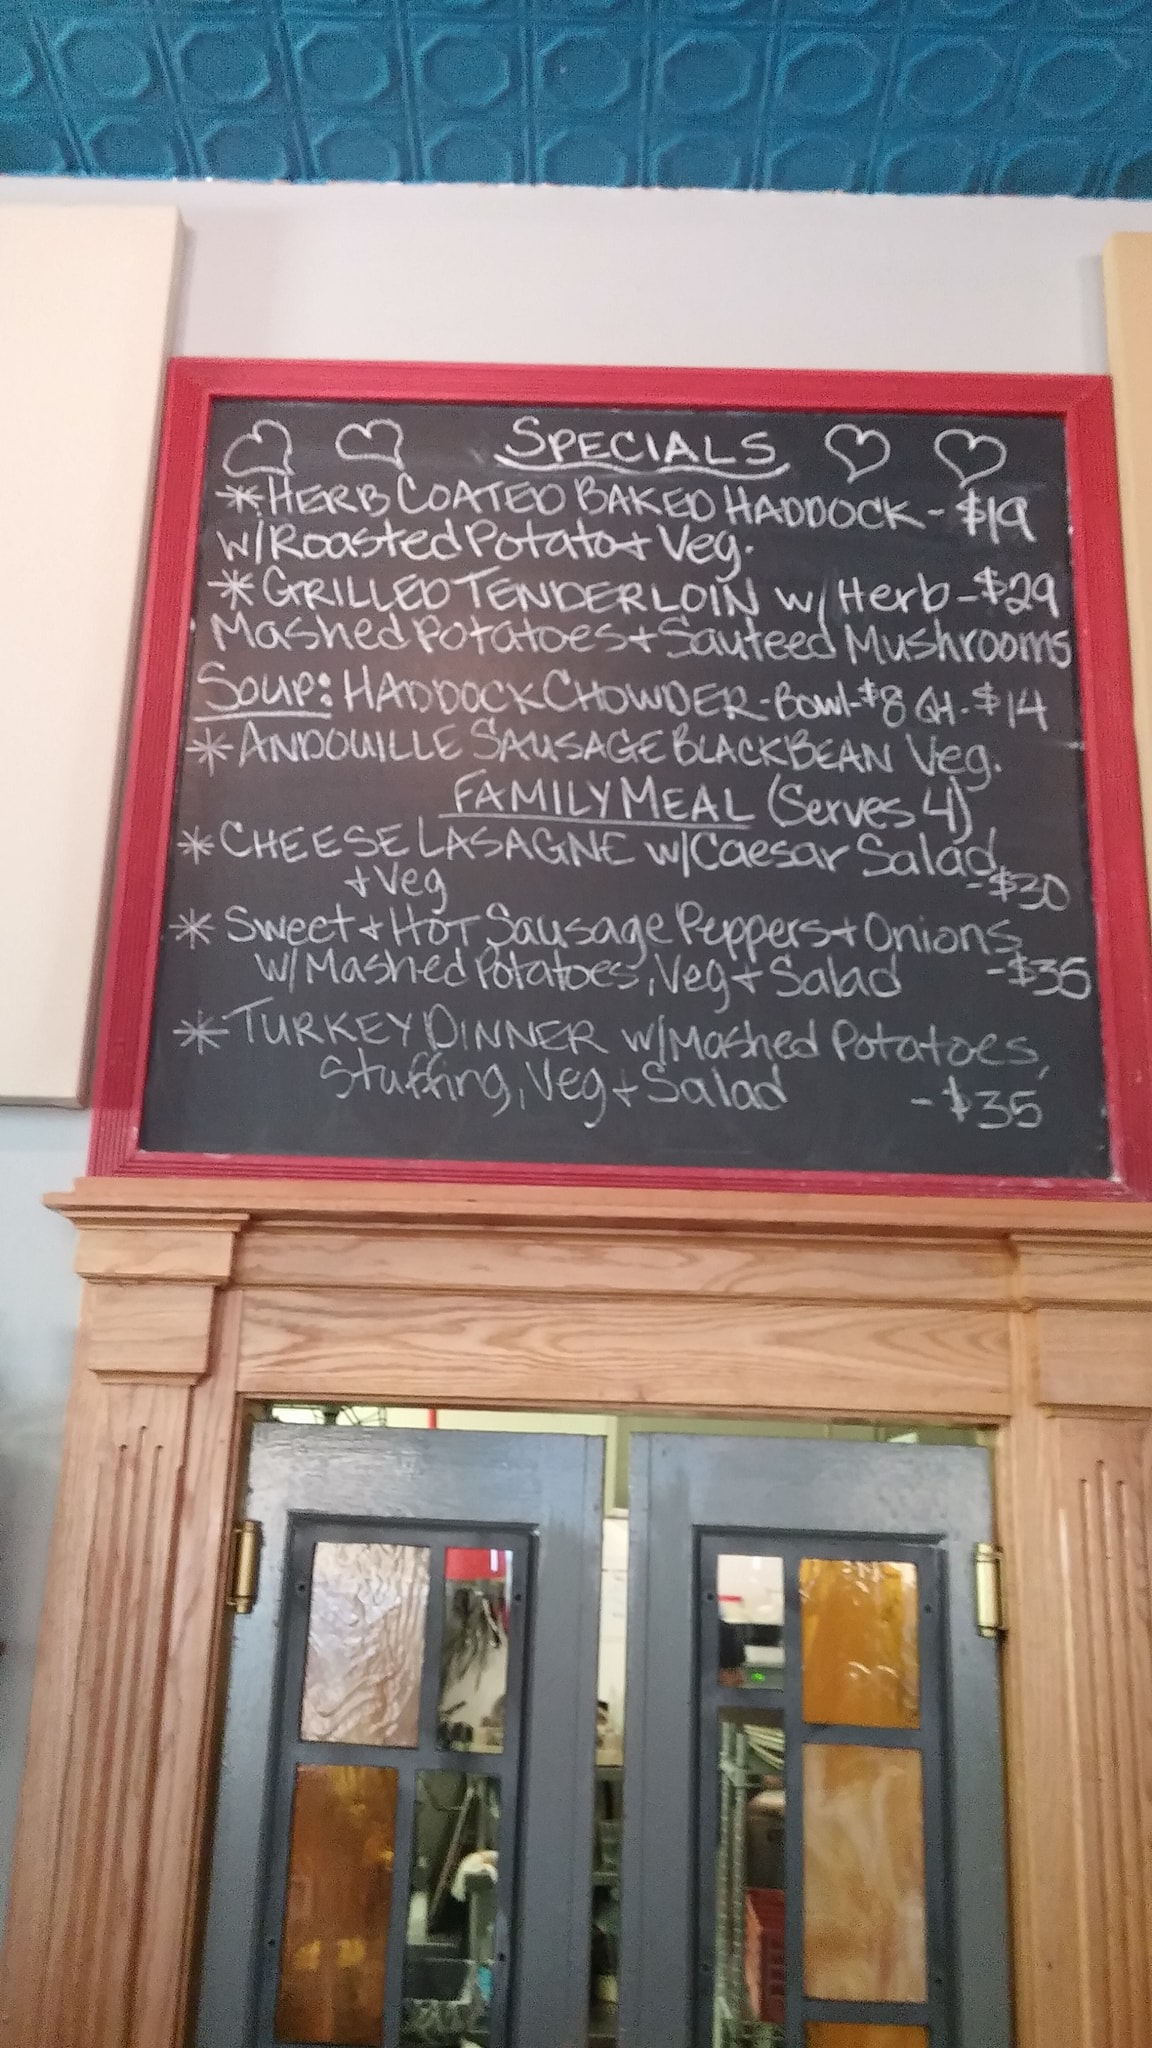 SPECIALS
*HERB COATED BAKED HADDOCK - $19
w/Roasted Potato + Veg.
*GRILLED TENDERLOIN w/ Herb - $29
Mashed Potatoes + Sauteed Mushrooms
Soup: HADDOCK CHOWDER - Bowl - $8 Qt. - $14
*ANDOUILLE SAUSAGE BLACK BEAN Veg.
FAMILY MEAL (Serves 4)
*CHEESE LASAGNE w/Caesar Salad
+ Veg - $30
*Sweet + HOT Sausage Peppers + Onions
w/Mashed Potatoes, Veg + Salad - $35
*TURKEY DINNER w/Mashed Potatoes,
Stuffing, Veg + Salad - $35